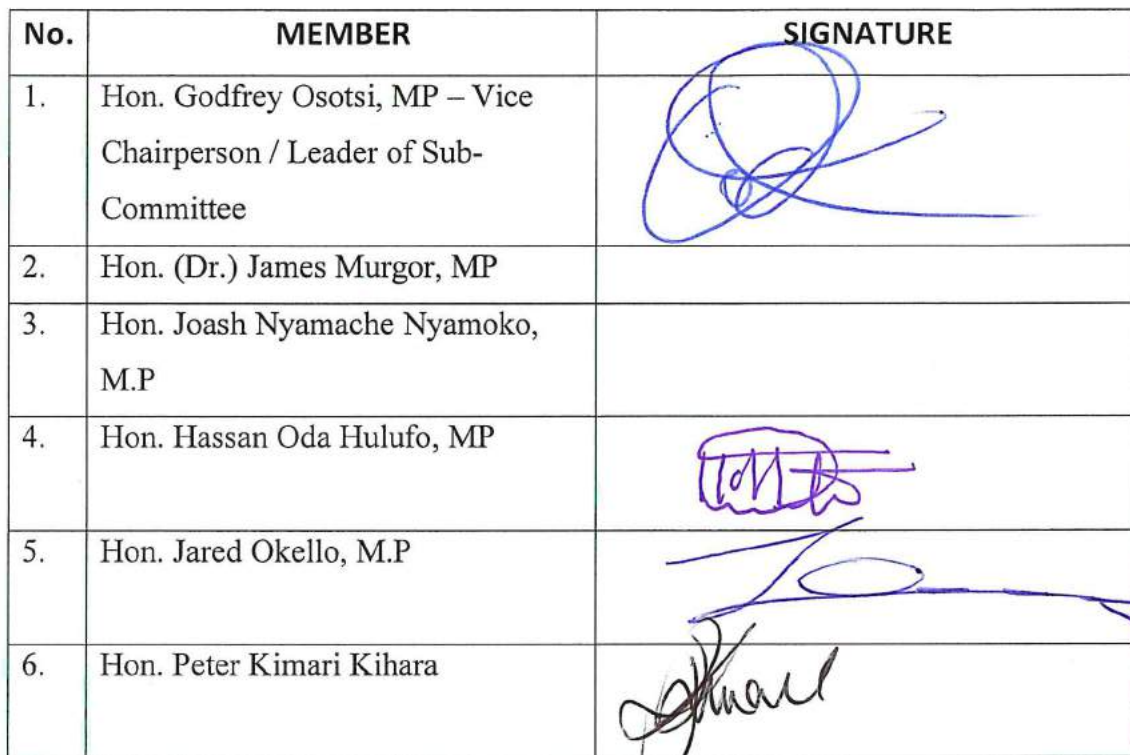 No. MEMBER SIGNATURE
1. Hon. Godfrey Osotsi, MP – Vice
Chairperson / Leader of Sub-
Committee
2. Hon. (Dr.) James Murgor, MP
3. Hon. Joash Nyamache Nyamoko,
M.P
4. Hon. Hassan Oda Hulufo, MP
5. Hon. Jared Okello, M.P
6. Hon. Peter Kimari Kihara